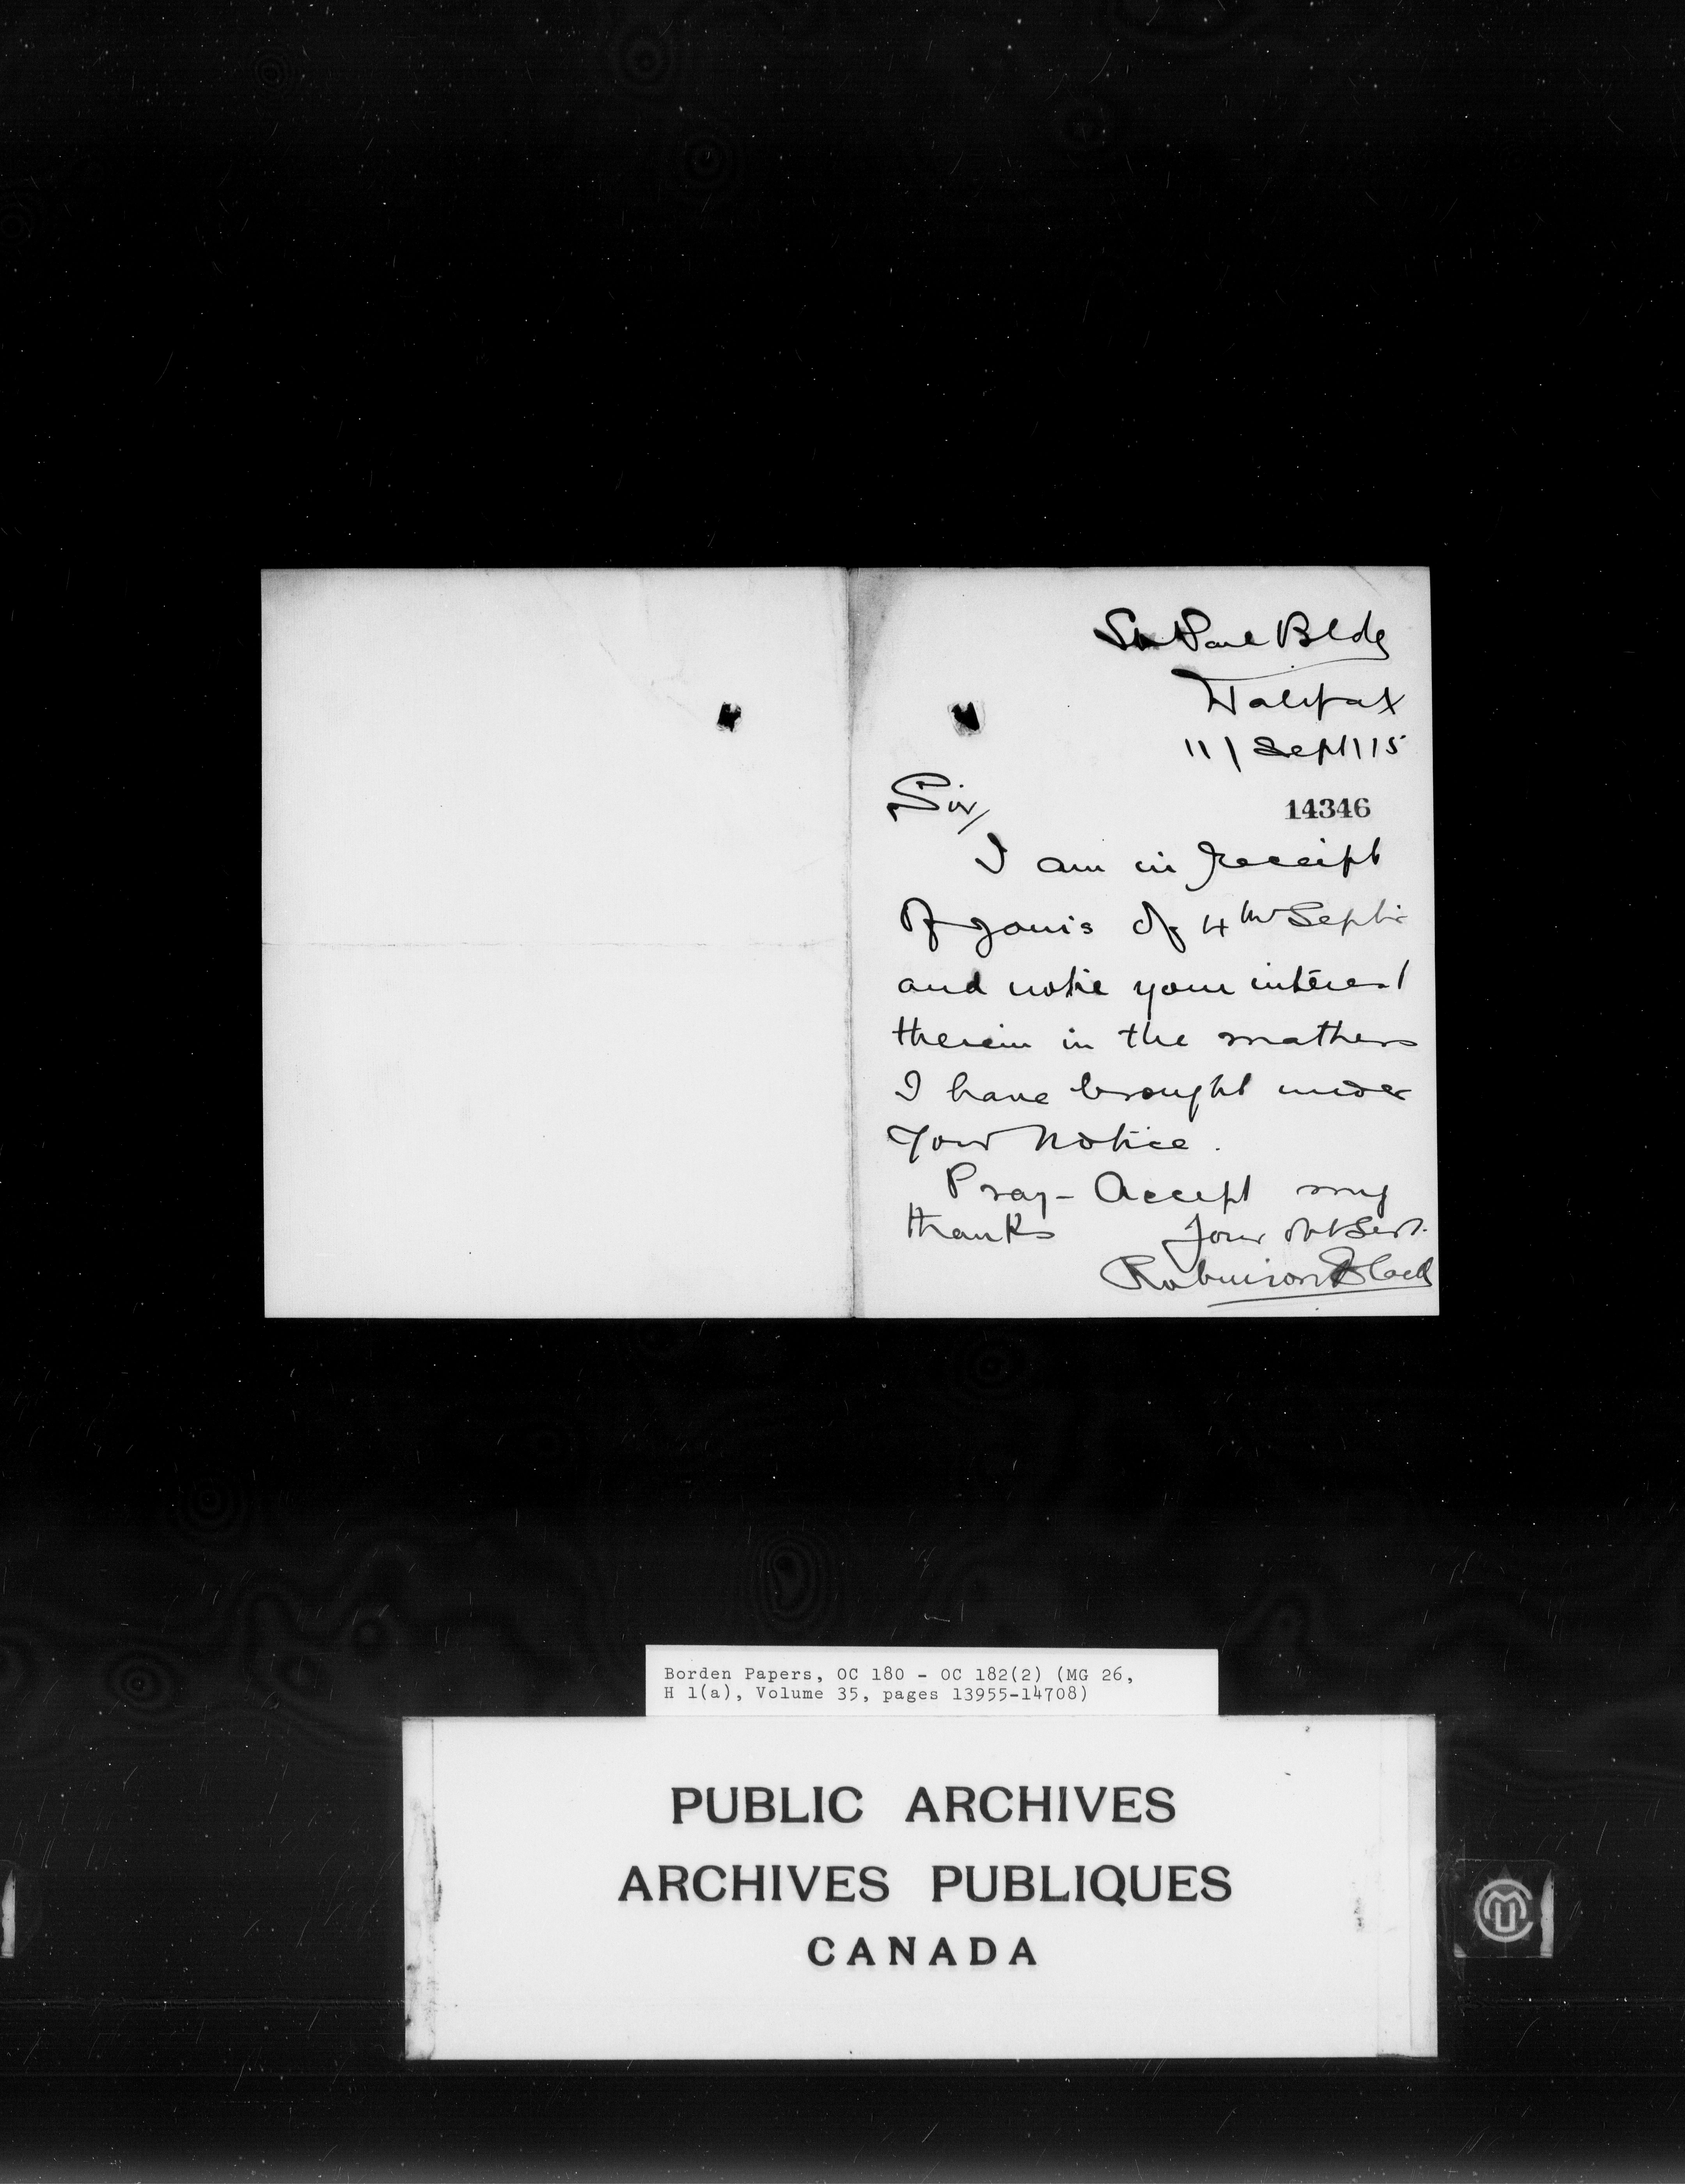 St Paul Bldg
Halifax
11/Sept/15
Sir/
14346
I am in receipt
of yours of 4th Septr
and note your interest
therein in the matters
I have brought under
Your Notice.
Pray- Accept my
thanks Your Obt Servt.
Robinson Black
Borden Papers, OC 180 - OC 182(2) (MG 26,
H 1(a), Volume 35, pages 13955-14708)
PUBLIC ARCHIVES
ARCHIVES PUBLIQUES
CANADA